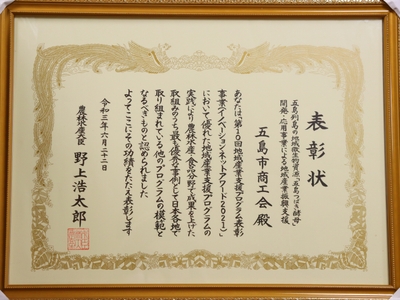 表彰状
五島列島の地域微生物資源「五島つばき酵母」
開発・応用事業による地域産業振興支援
五島市商工会殿
あなたは、第10回地域産業支援プログラム表彰
事業(イノベーションネットアワード2021)」
において優れた地域産業支援プログラムの
実践により農林水産・食品分野で成果を上げた
取組みのうち最も優秀な事例として日本各地で
取り組まれている他のプログラムの模範と
なるべきものと認められました
よってここにその功績をたたえ表彰します
令和三年六月二十二日
農林水産大臣 野上浩太郎